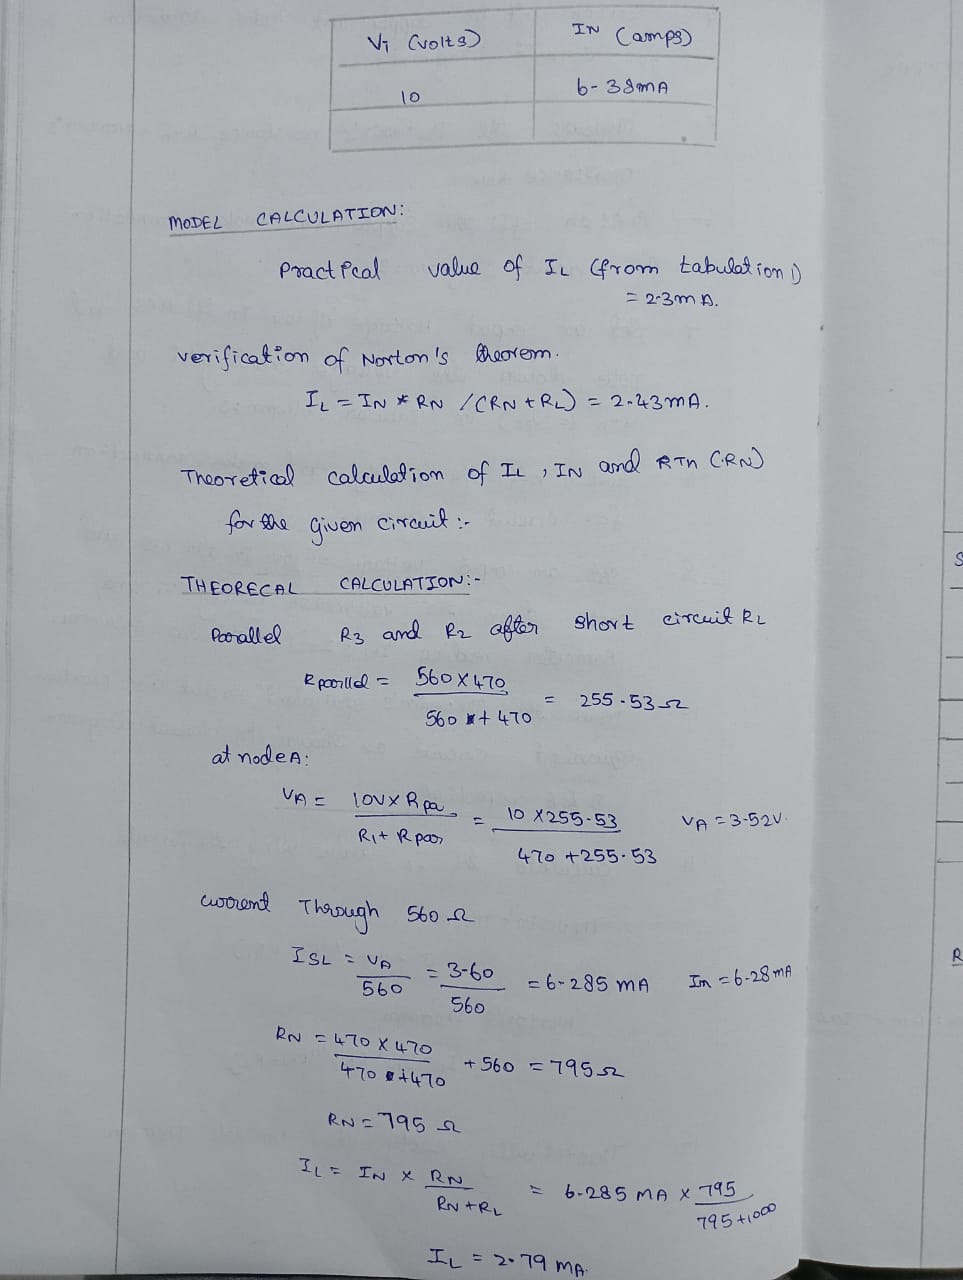 Vi (volts) IN (amps)
10 6-38mA
MODEL CALCULATION:
Practical value of IL (from tabulation 1)
= 2.3mA.
verification of Norton's theorem.
IL = IN * RN / (RN + RL) = 2.43mA.
Theoretical calculation of IL, IN and RTh (RN)
for the given circuit :-
THEORECAL CALCULATION:-
Parallel R3 and R2 after short circuit RL
R parllel = 560 X 470 / 560 + 470 = 255.53 Ω
at node A:
VA = 10V x Rpa / R1 + Rpar = 10 X 255.53 / 470 + 255.53 VA = 3-52V.
current Through 560 Ω
ISL = VA / 560 = 3-60 / 560 = 6-285 mA In = 6-28 mA
RN = 470 X 470 / 470 + 470 + 560 = 795 Ω
RN = 795 Ω
IL = IN X RN / RN + RL = 6-285 MA X 795 / 795 + 1000
IL = 2.79 mA.
S
R